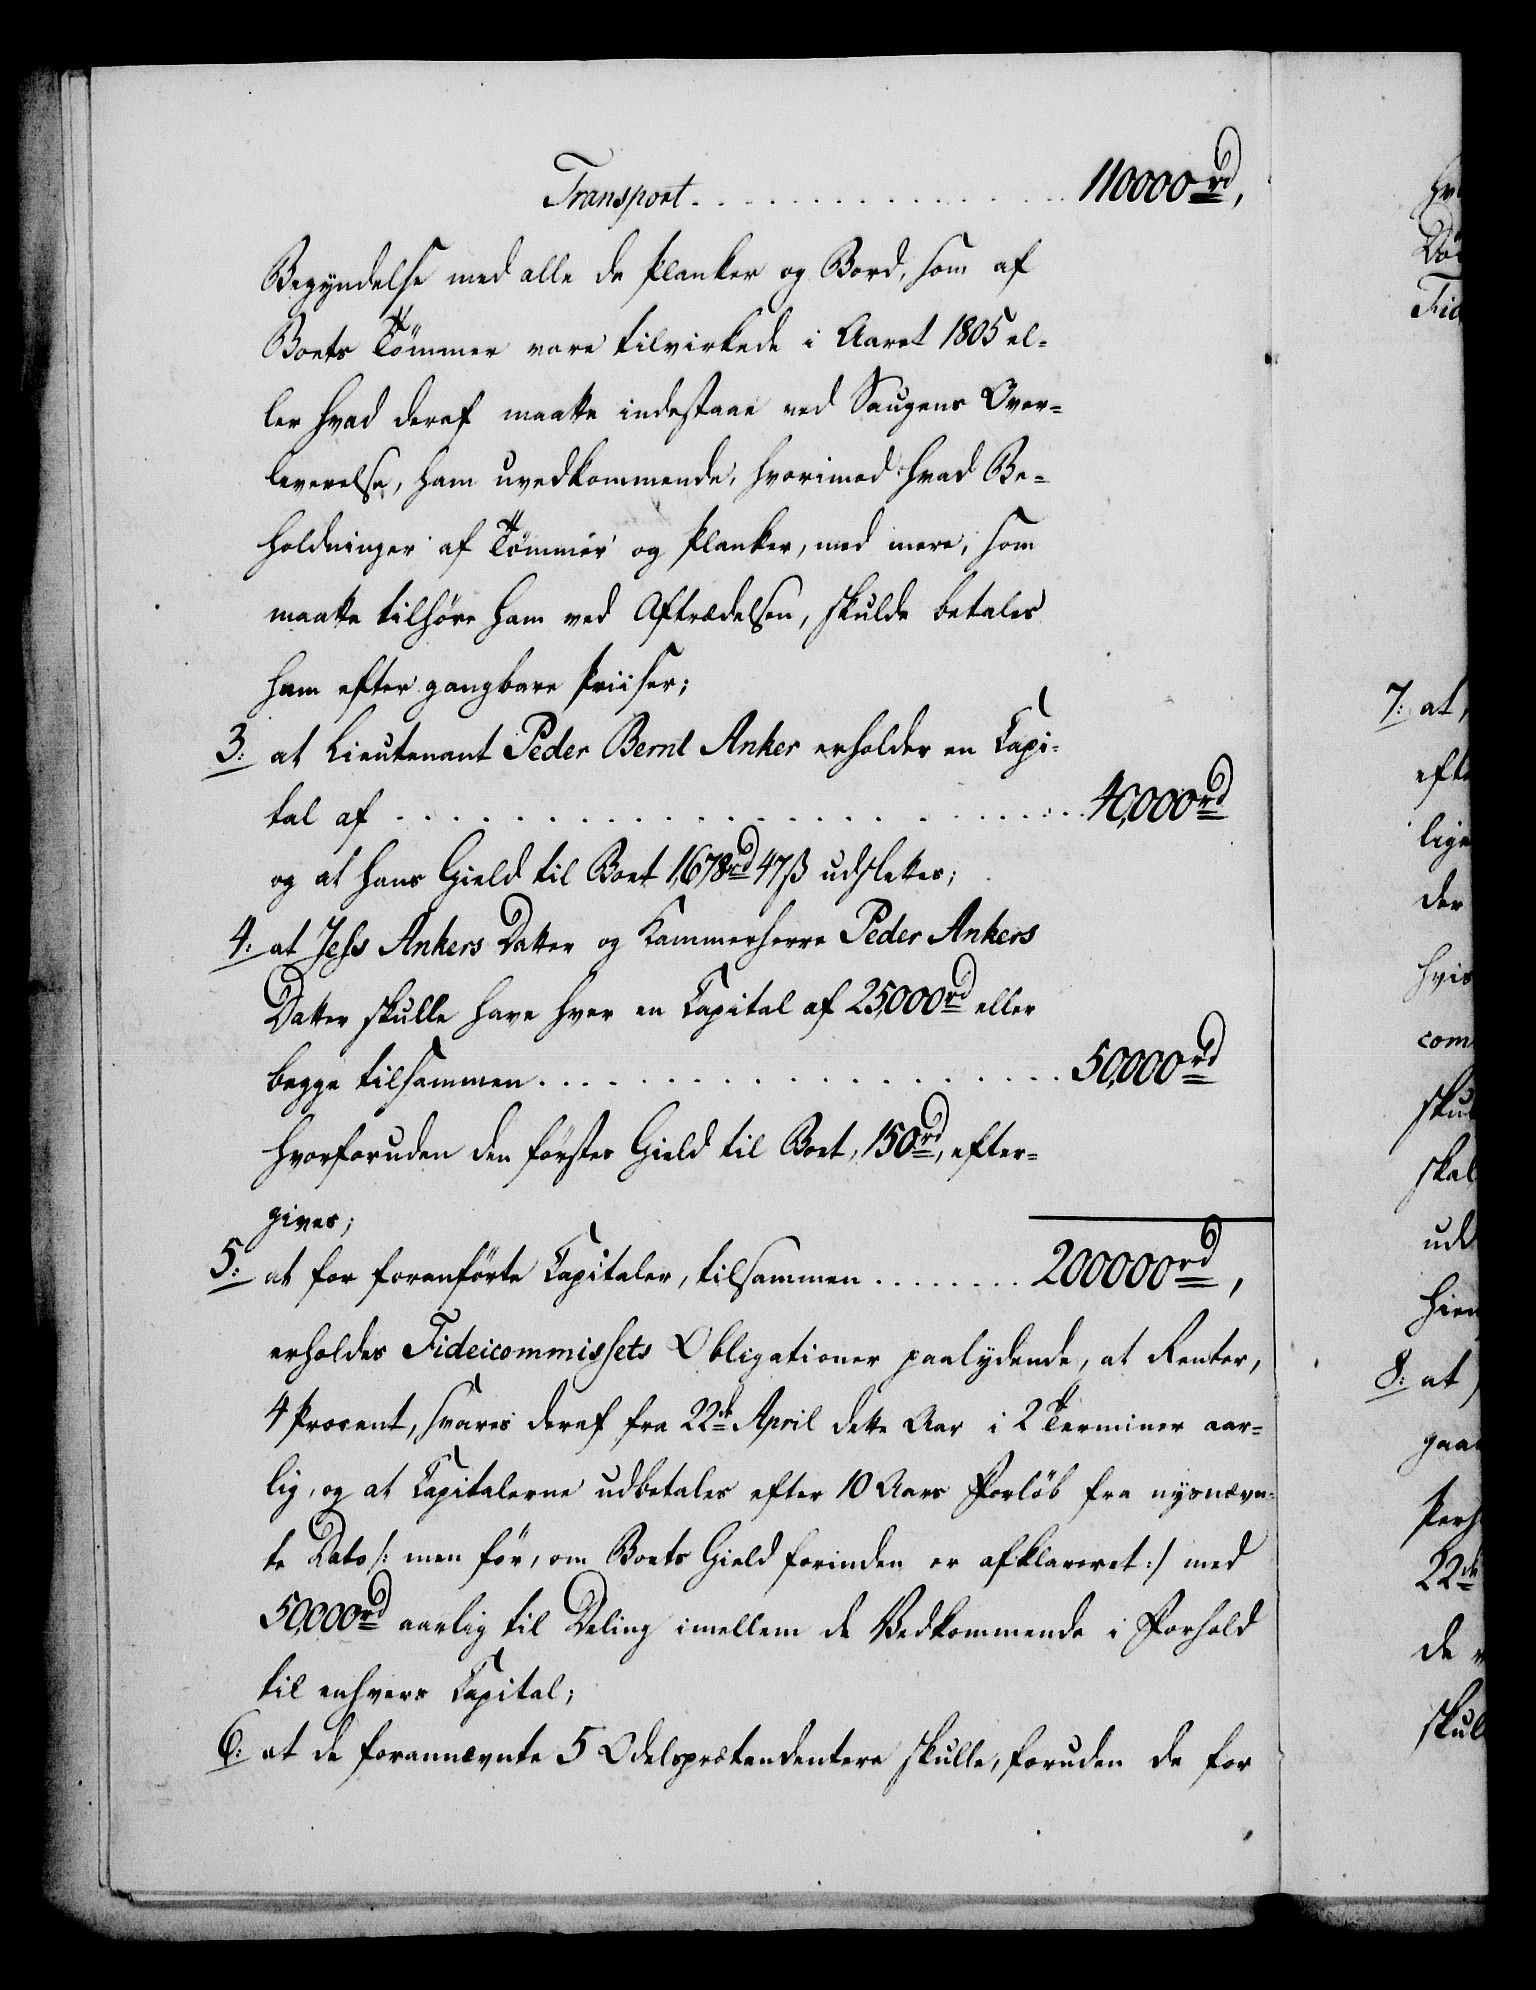 Transport . . . . . . . . . . . . . . 110000rd,
Begyndelse med alle de Planker og Bord, som af
Boets Tömmer vare tilvirkede i Aaret 1805 el-
ler hvad deraf maatte indestaae ved Saugens Over-
leverelse, ham uvedkommende, hvorimod hvad Be-
holdninger af Tömmer og Planker, med mere, som
maatte tilhöre ham ved Aftrædelsen, skulde betales
ham efter gangbare Priiser;
3: at Lieutenant Peder Bernt Anker erholder en Capi-
tal af . . . . . . . . . . . . . . . . . . 40,000rd
og at hans Gield til Boet 1,678rd 47ß udslettes;
4: at Jess Ankers Datter og Kammerherre Peder Ankers
Datter skulle have hver en Capital af 25,000rd eller
begge tilsammen . . . . . . . . . . . . . . 50,000rd
hvorforuden den förstes Gield til Boet, 150rd, efter-
gives;
5: at for foranförte Capitaler, tilsammen . . . . . . . 200000rd,
erholdes Fideicommissets Obligationer paalydende, at Renter,
4 Procent, svares deraf fra 22de April dette Aar i 2 Terminer aar-
lig, og at Capitalerne udbetales efter 10 Aars Forlöb fra nysnævn-
te Dato /: men för, om Boets Gield forinden er afklareret :/ med
50,000rd aarlig til Deling imellem de Vedkommende i Forhold
til enhvers Capital;
6: at de forannævnte 5 Odelsprætendentere skulle, foruden de for
7: at
efte
lige
der
hvis
com
skul
skal
udd
hien
8: at
gaae
Pers
22de
de
skul